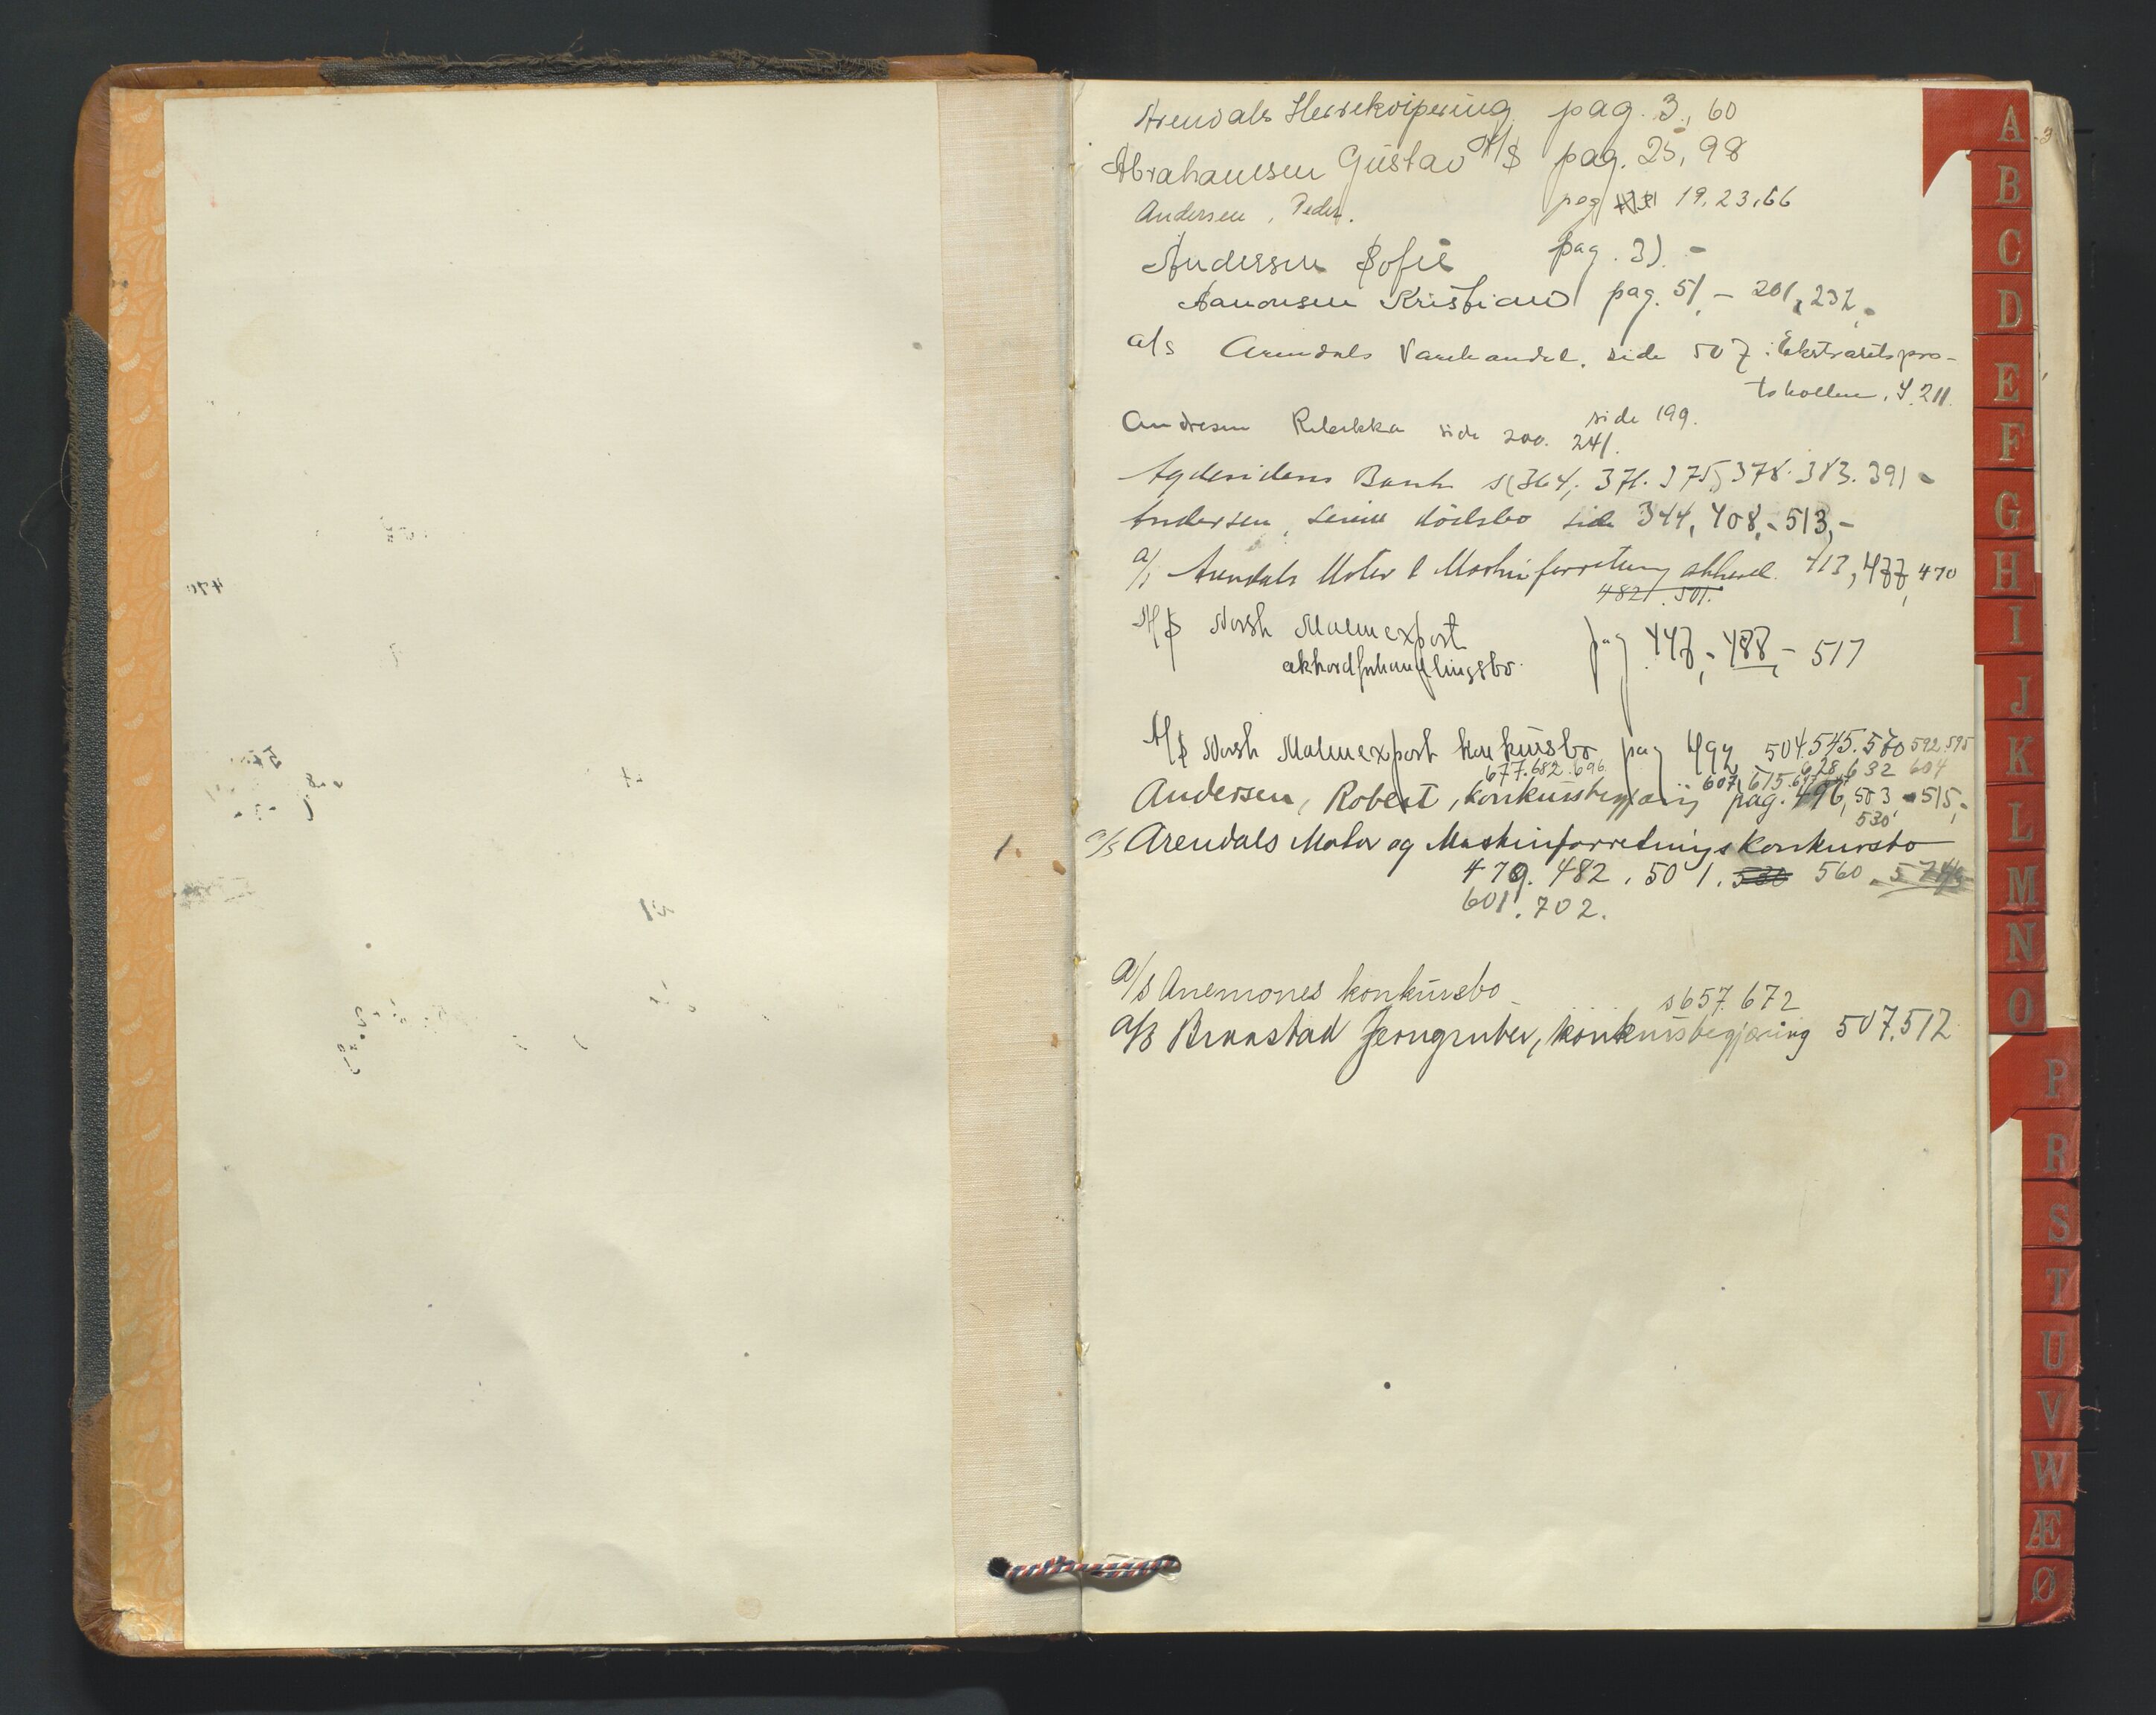 Arendals Herrekvipering pag. 3., 60
Abrahamsen Gustav A/S pag. 25, 98
Andersen, Peder. pag 19, 23, 66
Andersen Sofie pag. 3). -
Aanonsen Kristian pag. 51, - 201, 232,-
a/s Arendals Varehandel. side 507. Ekstraretspro-
tokollen, s. 211.
side 199.
Andresen Rebekka side 200. 241.
Agdesidens Bank s. 364, 371. 375, 378. 383. 391 -
Andersen, dödsbo side 344, 408,- 513,-
a/s Arendals Motor & Maskinforretning akkord. 413, 477, 470
482. 501.
A/S Norsk Malmexport pag 447,- 488,- 517
akkordforhandlingsbo.
A/S Norsk Malmexport konkursbo pag 492 504. 545. 560 592. 595
677. 682. 696. 607, 615. 628, 632 604
Andersen, Robert, konkursbegjæring pag. 496, 503 - 515,-
530
a/s Arendals Motor og Maskinforretnings konkursbo
479. 482. 501. 530 560
601. 702.
a/s Anemones konkursbo s 657. 672
a/s Braastad Jerngruber, konkursbegjæring 507. 512
1.
A
B
C
D
E
F
G
H
I
J
K
L
M
N
O
P
R
S
T
U
V
W
Æ
Ø